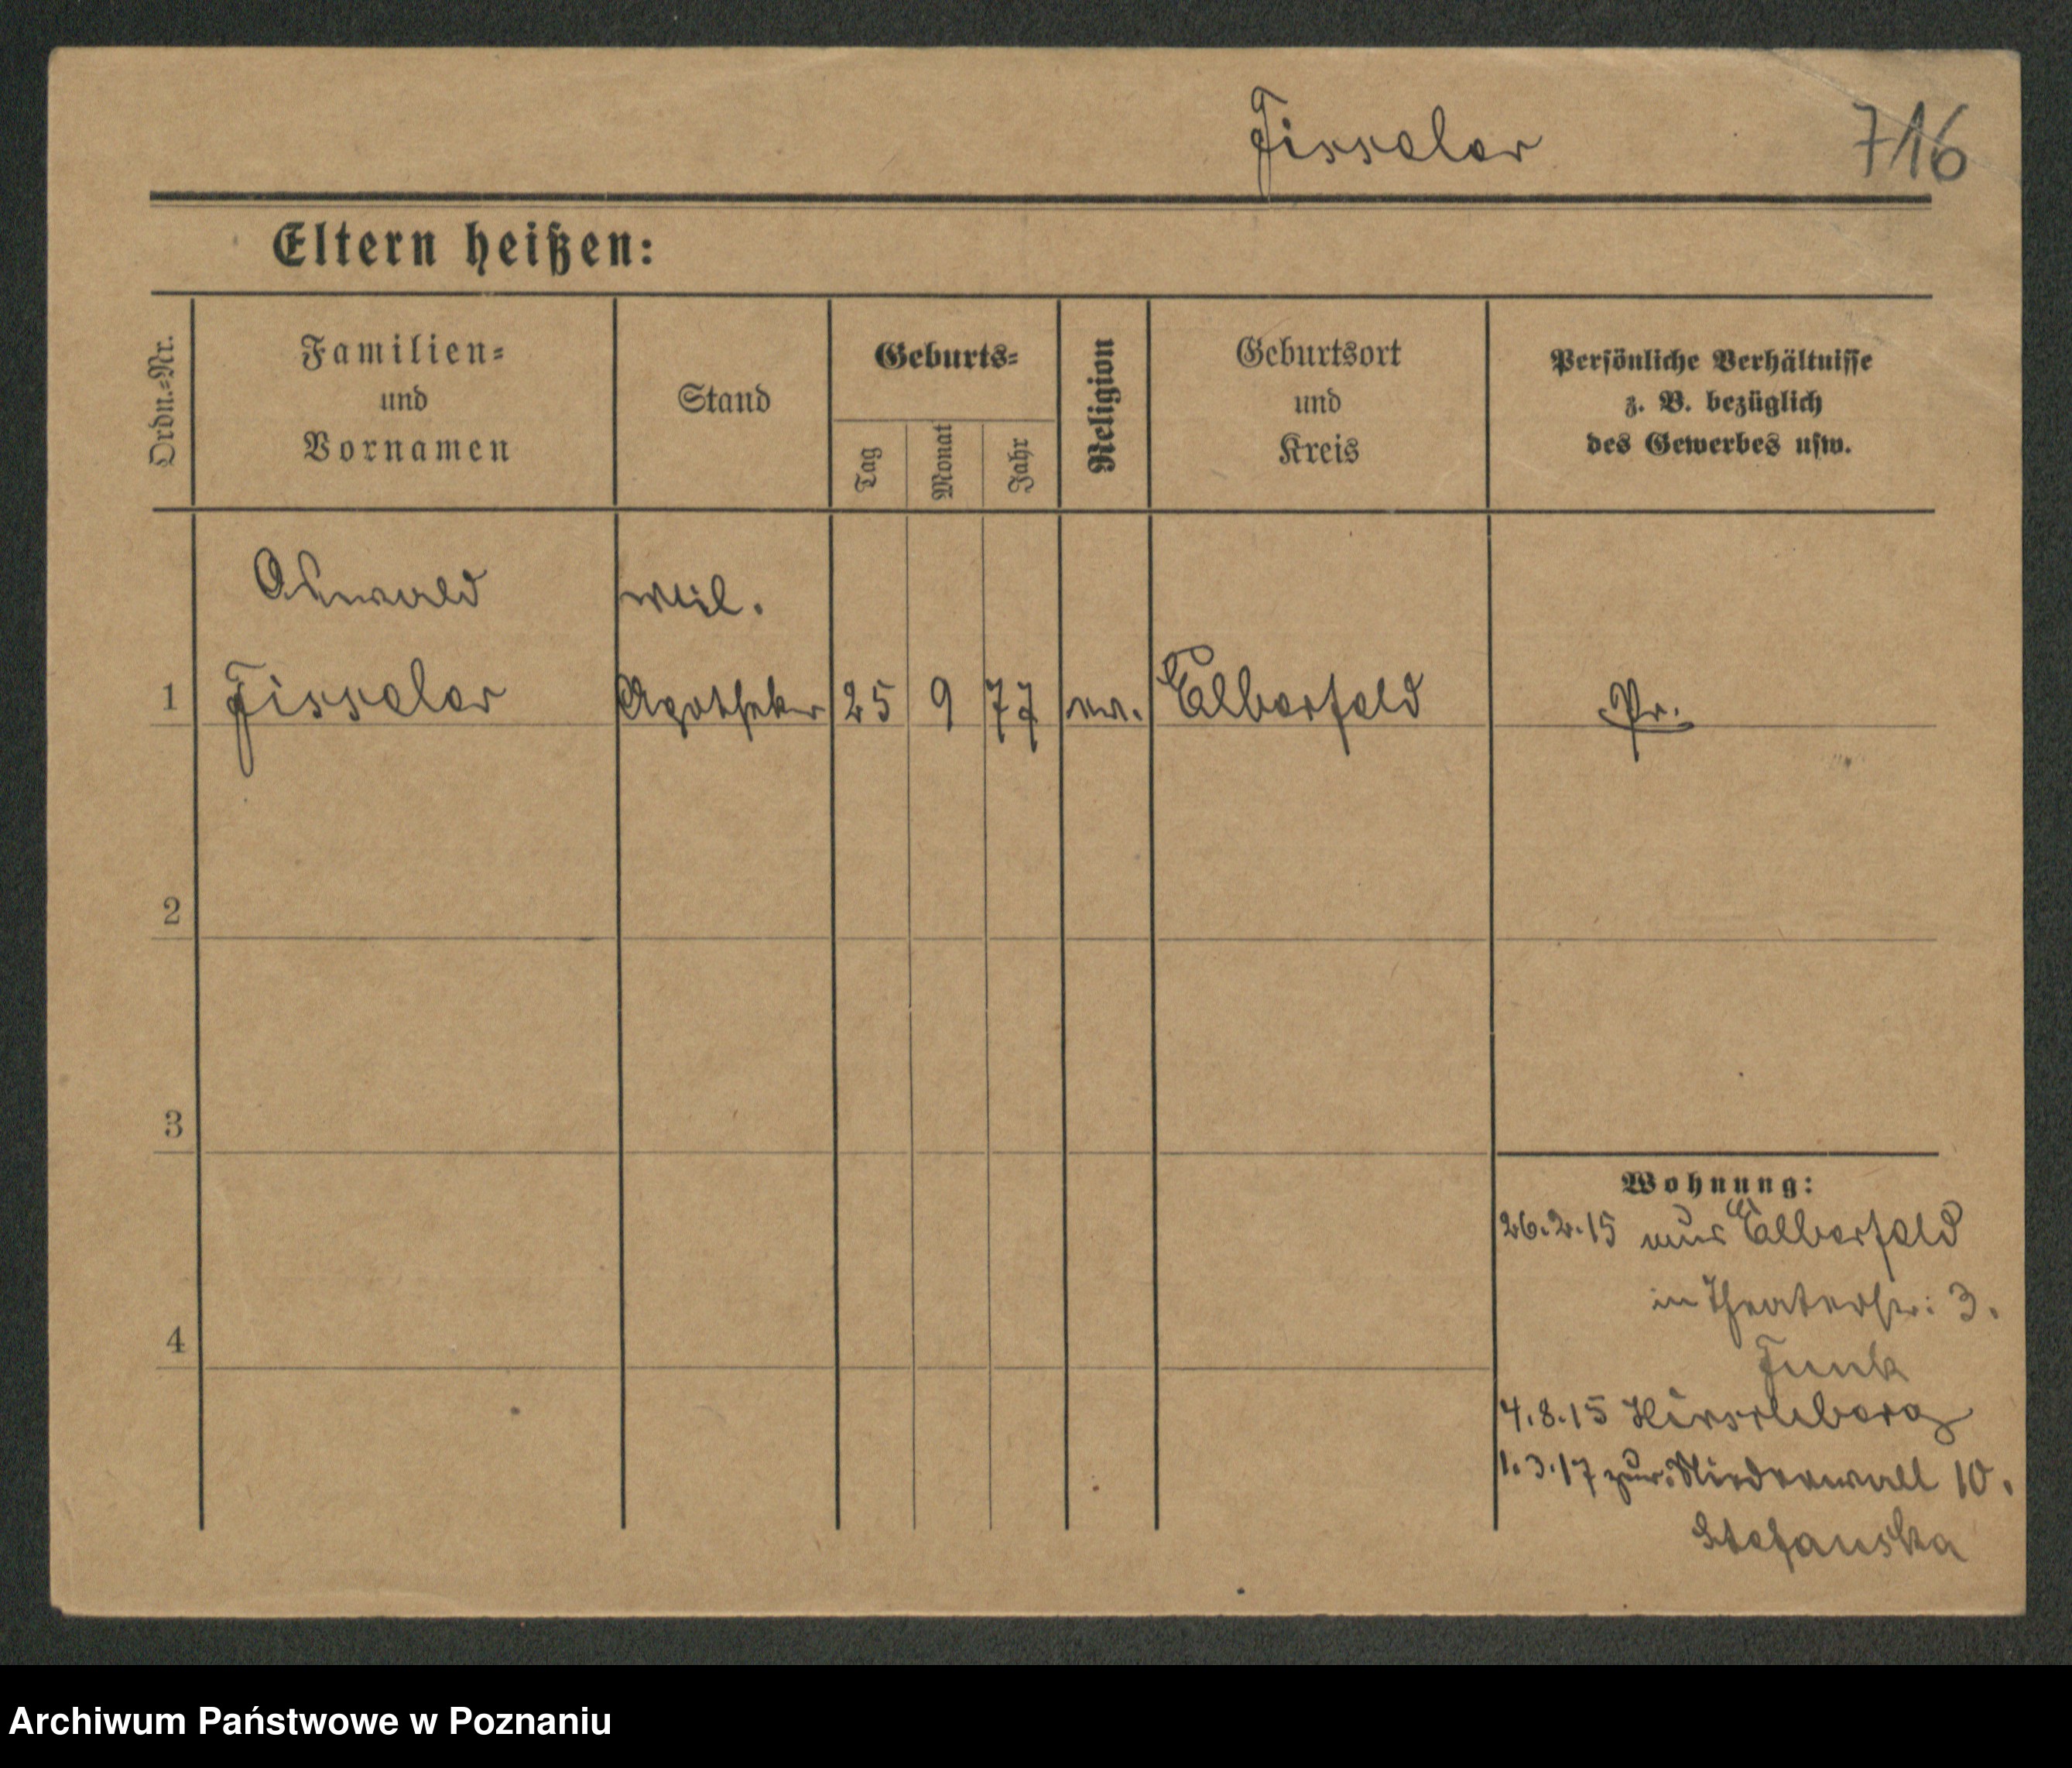 Fisseler 716
Eltern heißen:
Ordn.=Nr.
Familien=
und
Vornamen
Stand
Geburts=
Tag
Monat
Jahr
Religion
Geburtsort
und
Kreis
Persönliche Verhältnisse
z. B. bezüglich
des Gewerbes usw.
Oswald
1 Fisseler Apotheker 25 9 77 ev. Elberfeld Pr.
2
3
4
Wohnung:
26.2.15 aus Elberfeld
in Theaterstr: 3.
Funk
4.8.15 Hirschberg
1.3.17 zur. Niederwall 10.
Stefanska
Archiwum Państwowe w Poznaniu